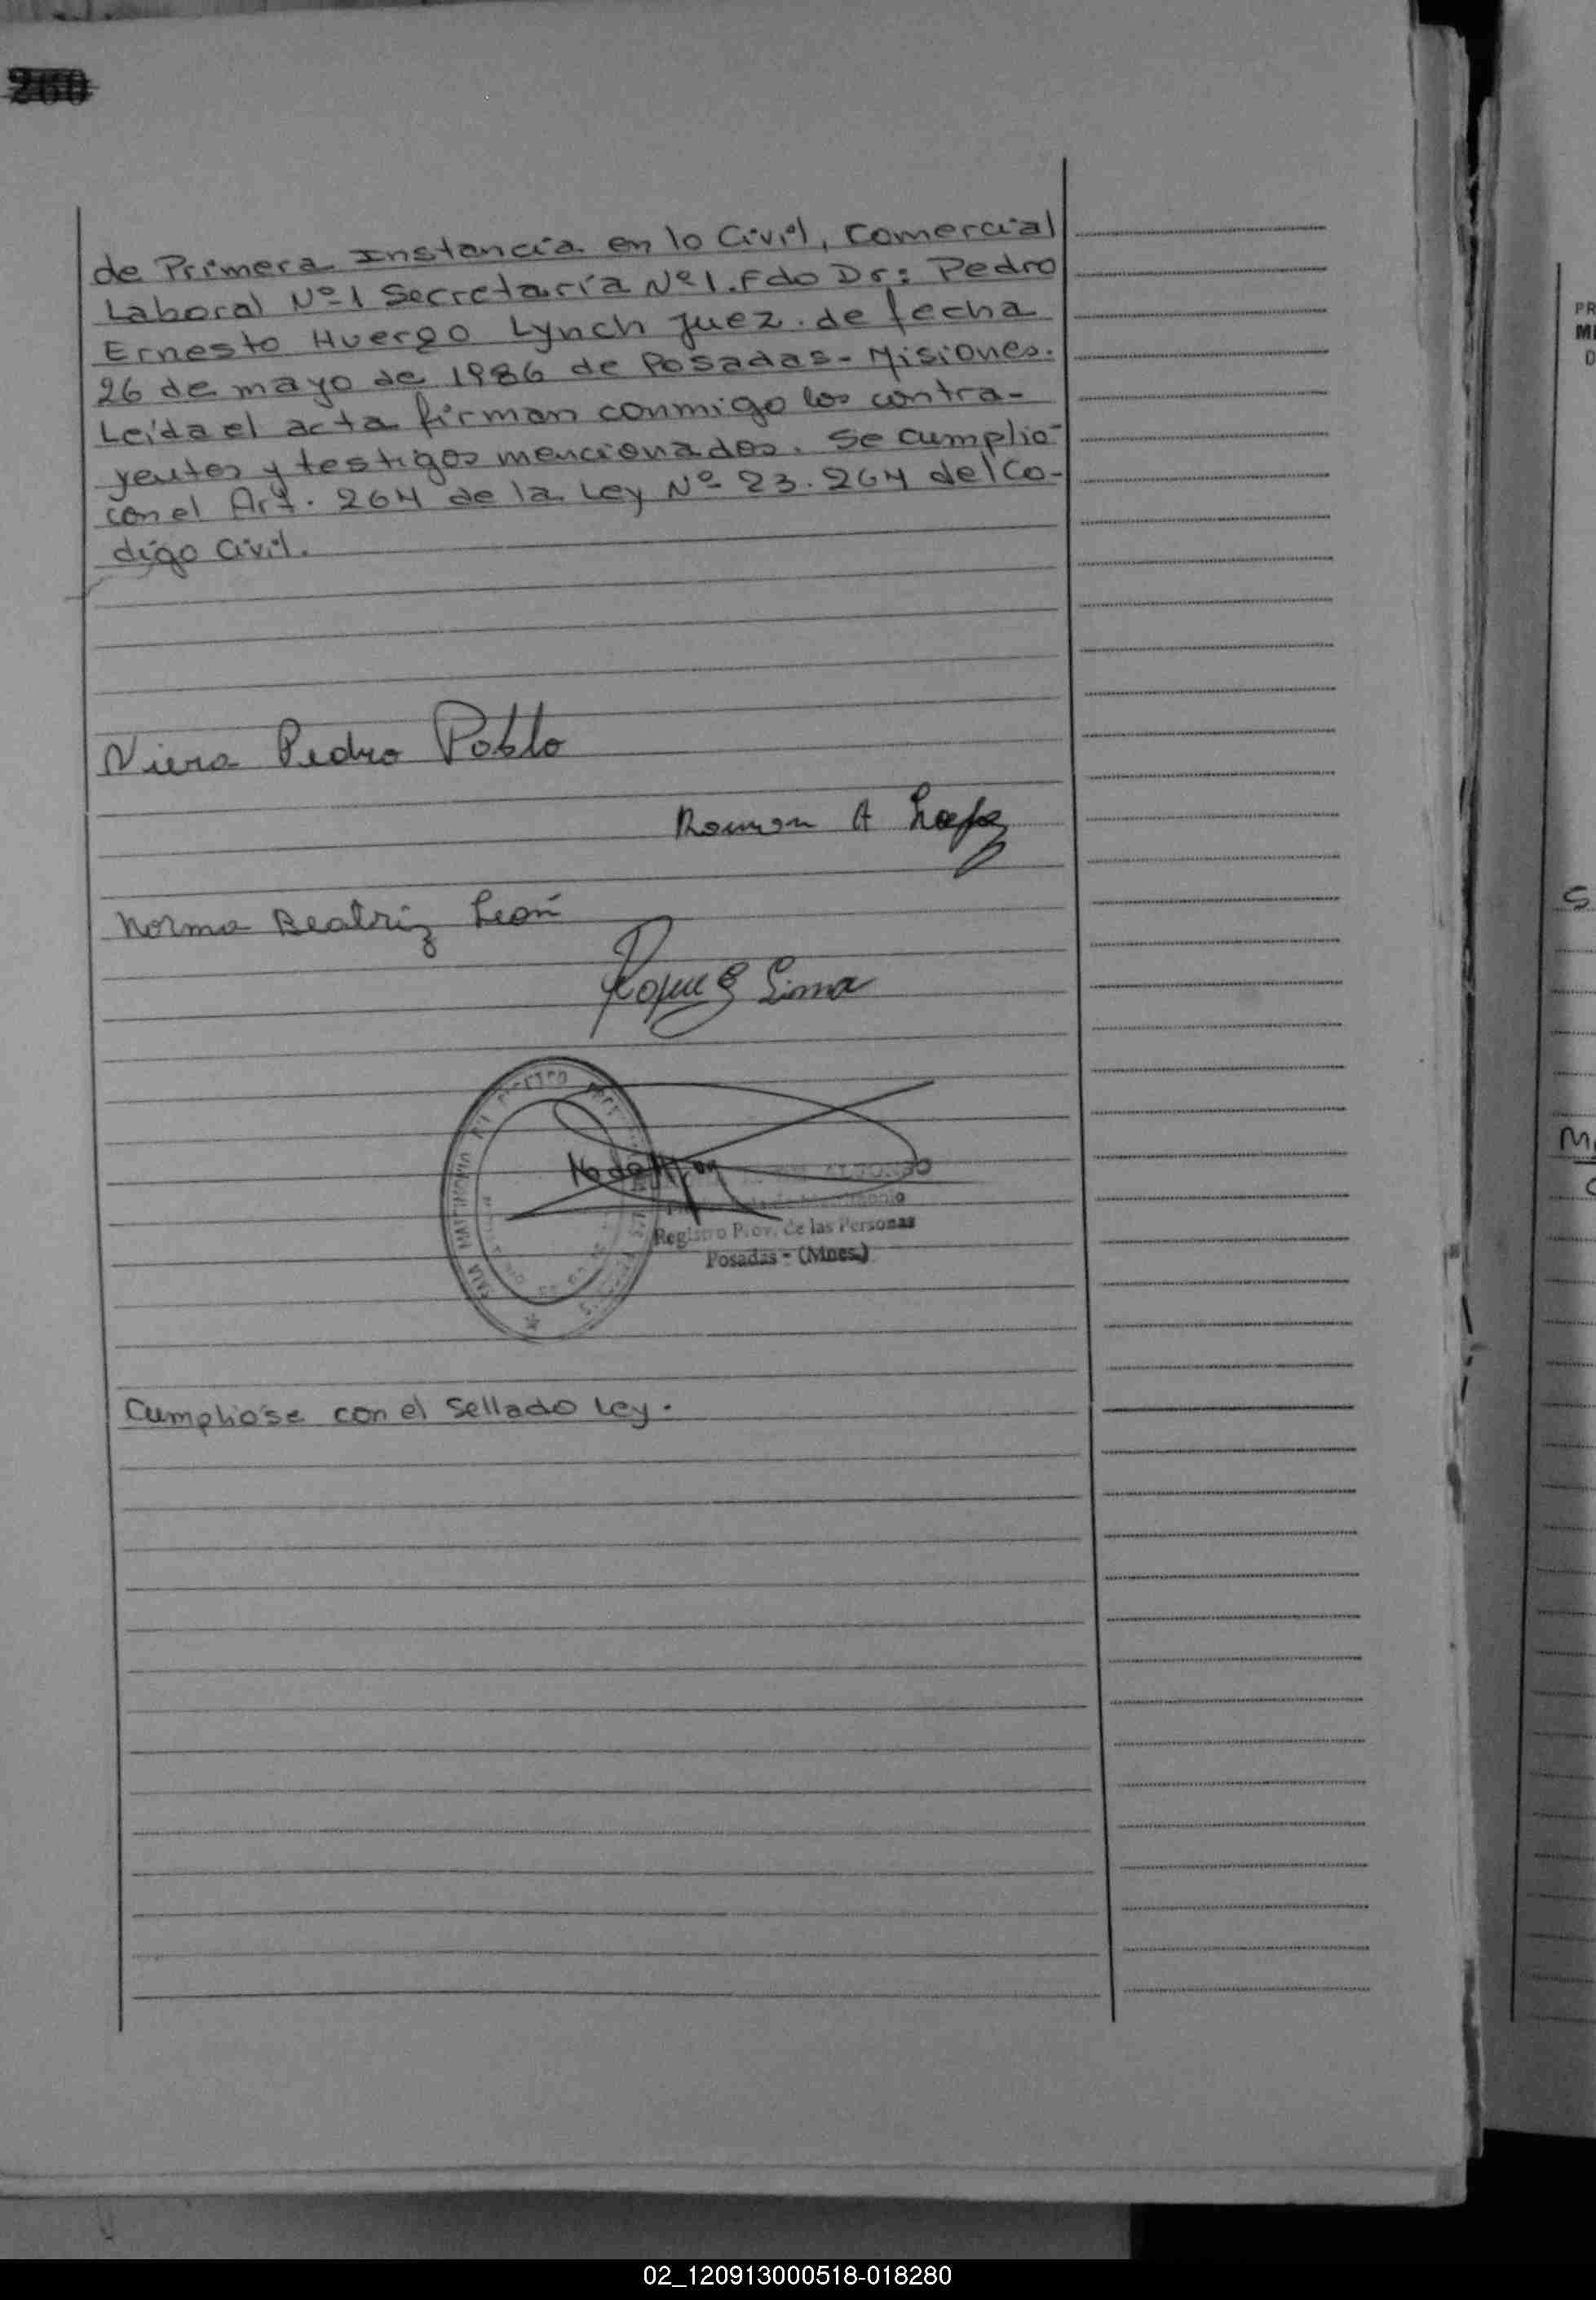 260
de Primera Instancia en lo Civil, Comercial
Laboral Nº1 Secretaría Nº1. Fdo Dr: Pedro
Ernesto Huergo Lynch Juez. de fecha
26 de mayo de 1986 de Posadas - Misiones.
Leída el acta firman conmigo los contra-
yentes y testigos mencionados. Se cumplió
con el Art. 264 de la Ley Nº 23.264 del Co-
digo Civil.
Viera Pedro Pablo
Ramon A Lopez
Norma Beatriz León
Roque Lima
Registro Prov. de las Personas
Posadas - (Mnes.)
Cumplióse con el Sellado Ley.
02_120913000518-018280